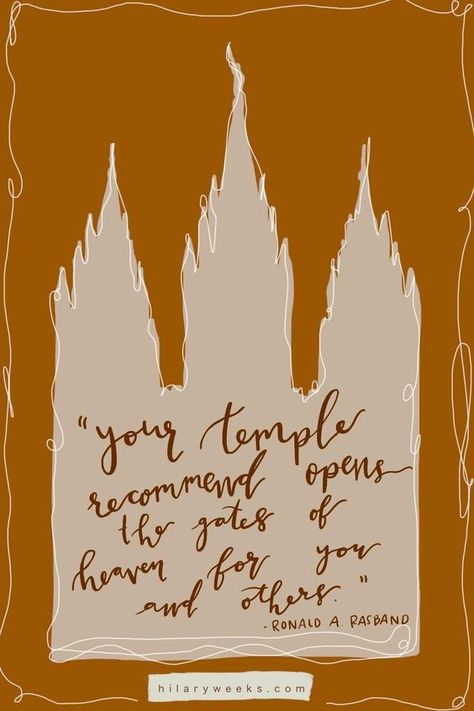 "your temple
recommend opens
the gates of
heaven for you
and others."
- RONALD A. RASBAND
hilaryweeks.com